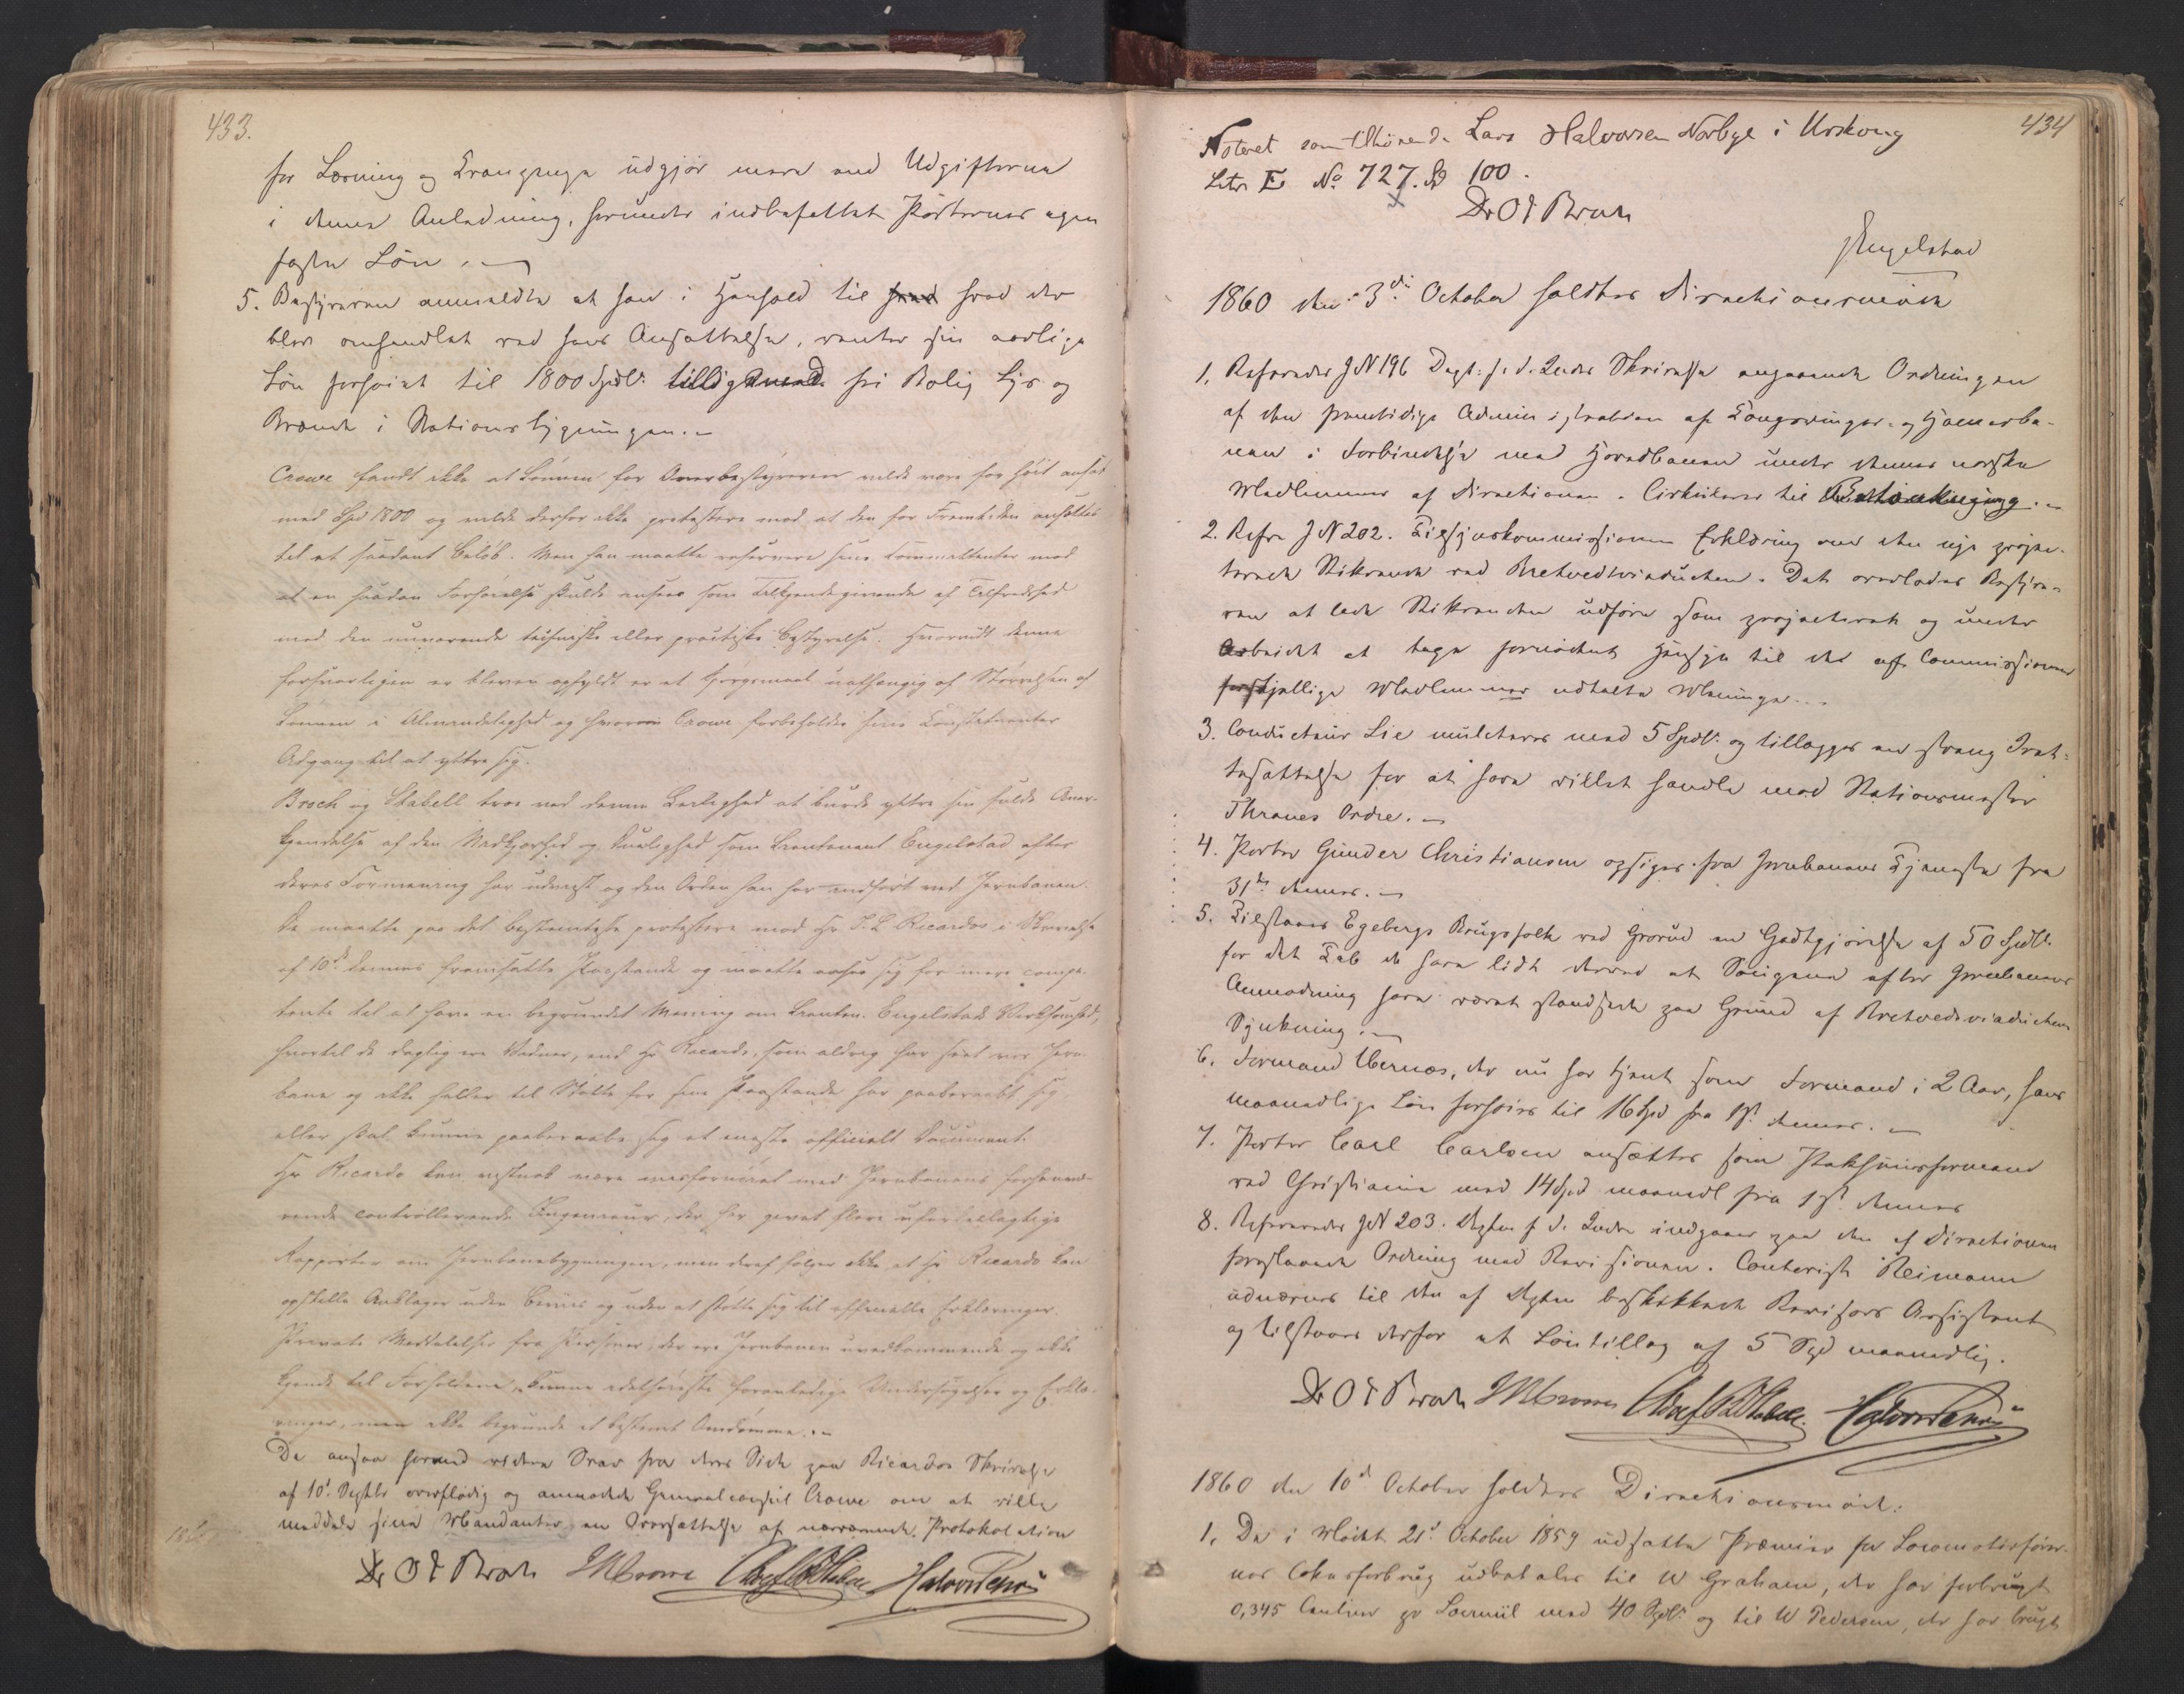 433.
for Losning og Transport udgjør mere end Udgifterne
i denne Anledning, herunder indbefattet Porternes egen
faste Løn. —
5. Bestyreren anmeldte at han i Henhold til hvad der
blev omhandlet ved hans Ansættelse, venter sin aarlige
Løn forhøiet til 1800 Spdl. tilligemed fri Bolig Lys og
Brænde i Stationsbygningen. —
Crowe fandt ikke at Lønnen for Overbestyreren vilde være for høit ansat
med Spd 1800 og vilde derfor ikke protestere mod at den for Fremtiden ansættes
til et saadant Beløb. Men han maatte reservere sine Committenter mod
at en saadan Forhøielse skulde ansees som Tilkjendegivende af Tilfredshed
med den nuværende techniske eller practiske Bestyrelse. Hvorvidt denne
forsvarligen er bleven opfyldt er et Spørgsmaal uafhængig af Størrelsen af
Lønnen i Almindelighed og hvorom Crowe forbeholder sine Constituenter
Adgang til at yttre sig.
Broch og Stabell tror ved denne Leilighed at burde yttre sin fulde Aner-
kjendelse af den Nidkjærhed og Duelighed som Lieutenant Engelstad efter
deres Formening har udvist og den Orden han har indført ved Jernbanen.
De maatte paa det bestemteste protestere mod Hr J. L. Ricardos i Skrivelse
af 10de dennes fremsatte Paastande og maatte ansee sig for mere compe-
tente til at have en begrundet Mening om Lieuten. Engelstads Virksomhed,
hvortil de daglig ere Vidner, end Hr Ricardo, som aldrig har seet vor Jern-
bane og ikke heller til Støtte for sine Paastande har paaberaabt sig
eller skal kunne paaberaabe sig et eneste officielt Document.
Hr Ricardo kan vistnok være misfornøiet med Jernbanens forhenvæ-
rende controllerende Ingenieur, der har givet flere ufordelagtige
Rapporter om Jernbanebygningen, men deraf følger ikke, at Hr Ricardo kan
opstille Anklager uden Beviis og uden at støtte sig til officielle Erklæringer.
Private Meddelelser fra Personer, der ere Jernbanen uvedkommende og ikke
kjende til Forholdene, kunne i det høieste foranledige Undersøgelser og Erklæ-
ringer, men ikke begrunde et bestemt Omdømme. —
De ansaa forøvrigt videre Svar fra deres Side paa Ricardos Skrivelse
af 10d Septbr overflødig og anmodede Generalconsul Crowe om at ville
meddele sine Mandanter en Oversættelse af nærværende Protokolation
Dr O J Broch JRCrowe Adolf Stabell Halvor
434
Noteret som tilhørende Lars Halvorsen Norbye i Urskoug
Litr. E No 727. Sp 100.
Dr O J Broch
Engelstad
1860 den 3die October holdtes Directionsmøde
1. Refereredes J N 196 Dept: f. d. Indres Skrivelse angaaende Ordningen
af den fremtidige Administration af Kongsvinger- og Hamarba-
nen i Forbindelse med Hovedbanen under dennes norske
Medlemmer af Directionen. Cirkulerer til Betænkning. —
2. Refr. J N 202. Tilsynskommissionens Erklæring om den nye projec-
terede Stikrende ved Bretvedtviaducten. Det overlodes Bestyre-
ren at lade Stikrenden udføre som projecteret og under
Arbeidet at tage fornødent Hensyn til de af Commissionens
forskjellige Medlemmer udtalte Meninger. —
3. Conducteur Lie mulcteres med 5 Spdl. og tillægges en streng Iret-
tesættelse for at have villet handle mod Stationsmester
Thranes Ordre. —
4. Porter Gunder Christiansen opsiges fra Jernbanens Tjeneste fra
31te dennes. —
5. Tilstaaes Egebergs Brugsfolk ved Grorud en Godtgjørelse af 50 Spdl.
for det Tab de have lidt derved at Saugene efter Jernbanens
Anmodning have været standsede paa Grund af Bretvedsviaductens
Synkning. —
6. Formand Ubernæs, der nu har tjent som Formand i 2 Aar, hans
maanedlige Løn forhøies til 16 Spd fra 1st dennes. —
7. Porter Carl Carlsen ansættes som Pakhuusformand
ved Christiania med 14 Spd maanedl fra 1st dennes
8. Refereredes J N 203. Depten f d. Indre indgaaer paa den af Directionen
foreslaaede Ordning med Revisionen. Contorist Reimann
udnævnes til den af Depten beskikkede Revisors Assistent
og tilstaaes derfor et Løntillæg af 5 Spd maanedlig.
Dr O J Broch JRCrowe Adolf Stabell Halvor
1860 den 10d October holdtes Directionsmøde:
1. De i Mødet 21d October 1859 udsatte Præmier for Locomotivfører-
nes Cokesforbrug udbetales til W Graham, der har forbrugt
0,345 Centner pr Locmiil med 40 Spdl. og til W Pedersen, der har brugt